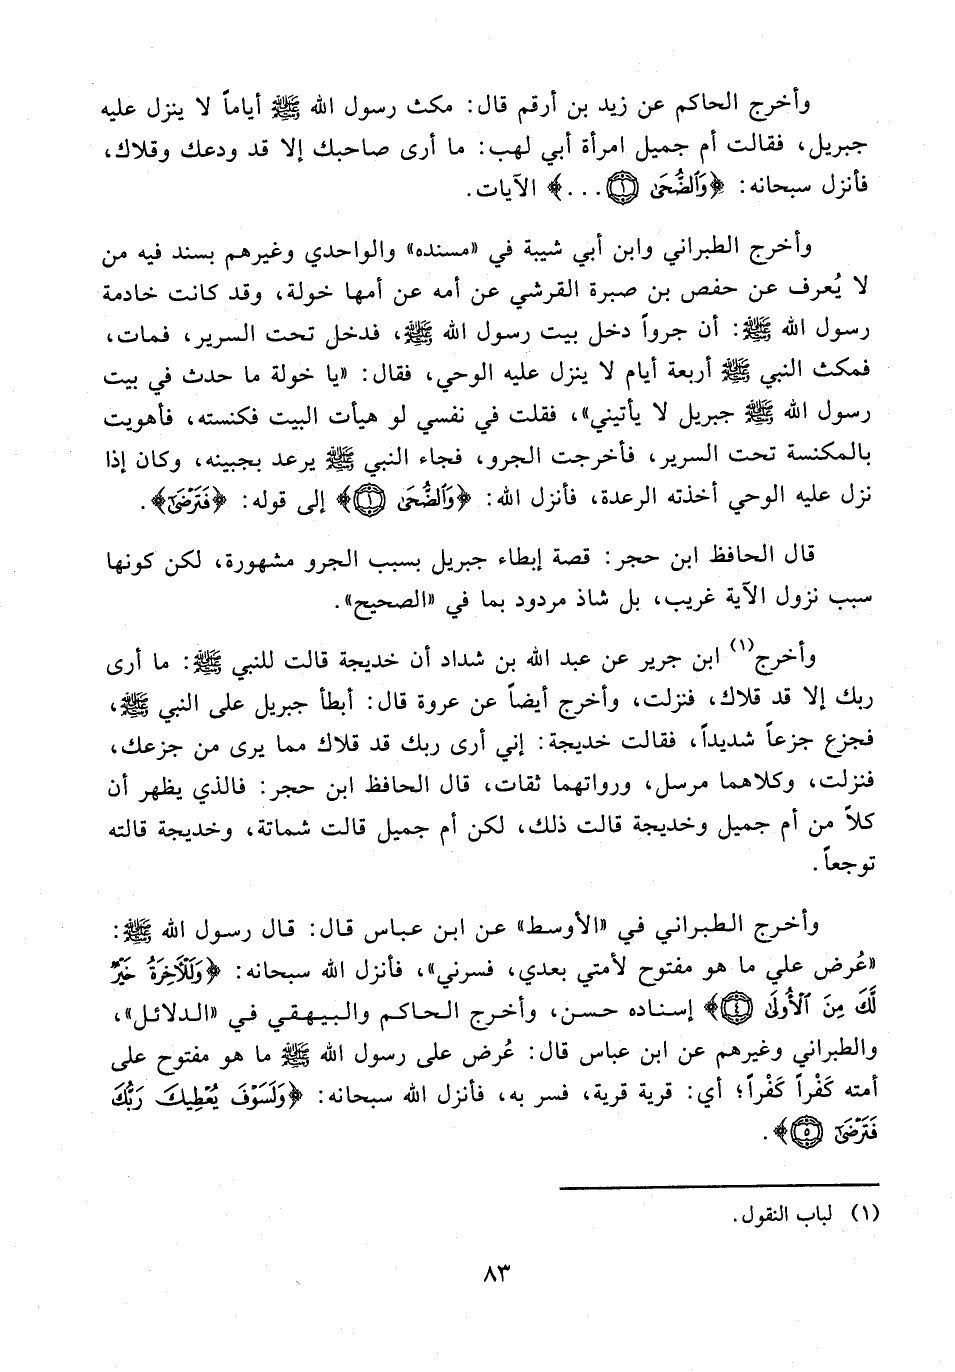 وأخرج الحاكم عن زيد بن أرقم قال: مكث رسول الله ﷺ أياماً لا ينزل عليه
جبريل، فقالت أم جميل امرأة أبي لهب: ما أرى صاحبك إلا قد ودعك وقلاك،
فأنزل سبحانه: ﴿وَٱلضُّحَىٰ ۝١...﴾ الآيات.
وأخرج الطبراني وابن أبي شيبة في «مسنده» والواحدي وغيرهم بسند فيه من
لا يُعرف عن حفص بن صبرة القرشي عن أمه عن أمها خولة، وقد كانت خادمة
رسول الله ﷺ: أن جرواً دخل بيت رسول الله ﷺ، فدخل تحت السرير، فمات،
فمكث النبي ﷺ أربعة أيام لا ينزل عليه الوحي، فقال: «يا خولة ما حدث في بيت
رسول الله ﷺ جبريل لا يأتيني»، فقلت في نفسي لو هيأت البيت فكنسته، فأهويت
بالمكنسة تحت السرير، فأخرجت الجرو، فجاء النبي ﷺ يرعد بجبينه، وكان إذا
نزل عليه الوحي أخذته الرعدة، فأنزل الله: ﴿وَٱلضُّحَىٰ ۝١﴾ إلى قوله: ﴿فَتَرْضَىٰٓ﴾.
قال الحافظ ابن حجر: قصة إبطاء جبريل بسبب الجرو مشهورة، لكن كونها
سبب نزول الآية غريب، بل شاذ مردود بما في «الصحيح».
وأخرج(١) ابن جرير عن عبد الله بن شداد أن خديجة قالت للنبي ﷺ: ما أرى
ربك إلا قد قلاك، فنزلت، وأخرج أيضاً عن عروة قال: أبطأ جبريل على النبي ﷺ،
فجزع جزعاً شديداً، فقالت خديجة: إني أرى ربك قد قلاك مما يرى من جزعك،
فنزلت، وكلاهما مرسل، ورواتهما ثقات، قال الحافظ ابن حجر: فالذي يظهر أن
كلاً من أم جميل وخديجة قالت ذلك، لكن أم جميل قالت شماتة، وخديجة قالته
توجعاً.
وأخرج الطبراني في «الأوسط» عن ابن عباس قال: قال رسول الله ﷺ:
«عُرض علي ما هو مفتوح لأمتي بعدي، فسرني»، فأنزل الله سبحانه: ﴿وَلَلْأَخِرَةُ خَيْرٌ
لَّكَ مِنَ ٱلْأُولَىٰ ۝٤﴾ إسناده حسن، وأخرج الحاكم والبيهقي في «الدلائل»،
والطبراني وغيرهم عن ابن عباس قال: عُرض على رسول الله ﷺ ما هو مفتوح على
أمته كَفْراً كَفْراً؛ أي: قرية قرية، فسر به، فأنزل الله سبحانه: ﴿وَلَسَوْفَ يُعْطِيكَ رَبُّكَ
فَتَرْضَىٰٓ ۝٥﴾.
(١) لباب النقول.
٨٣